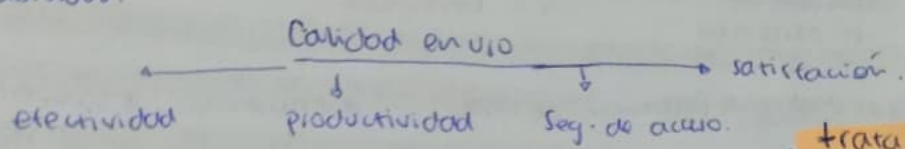 Calidad en uso
satisfacción.
efectividad productividad Seg. de acceso.
trata